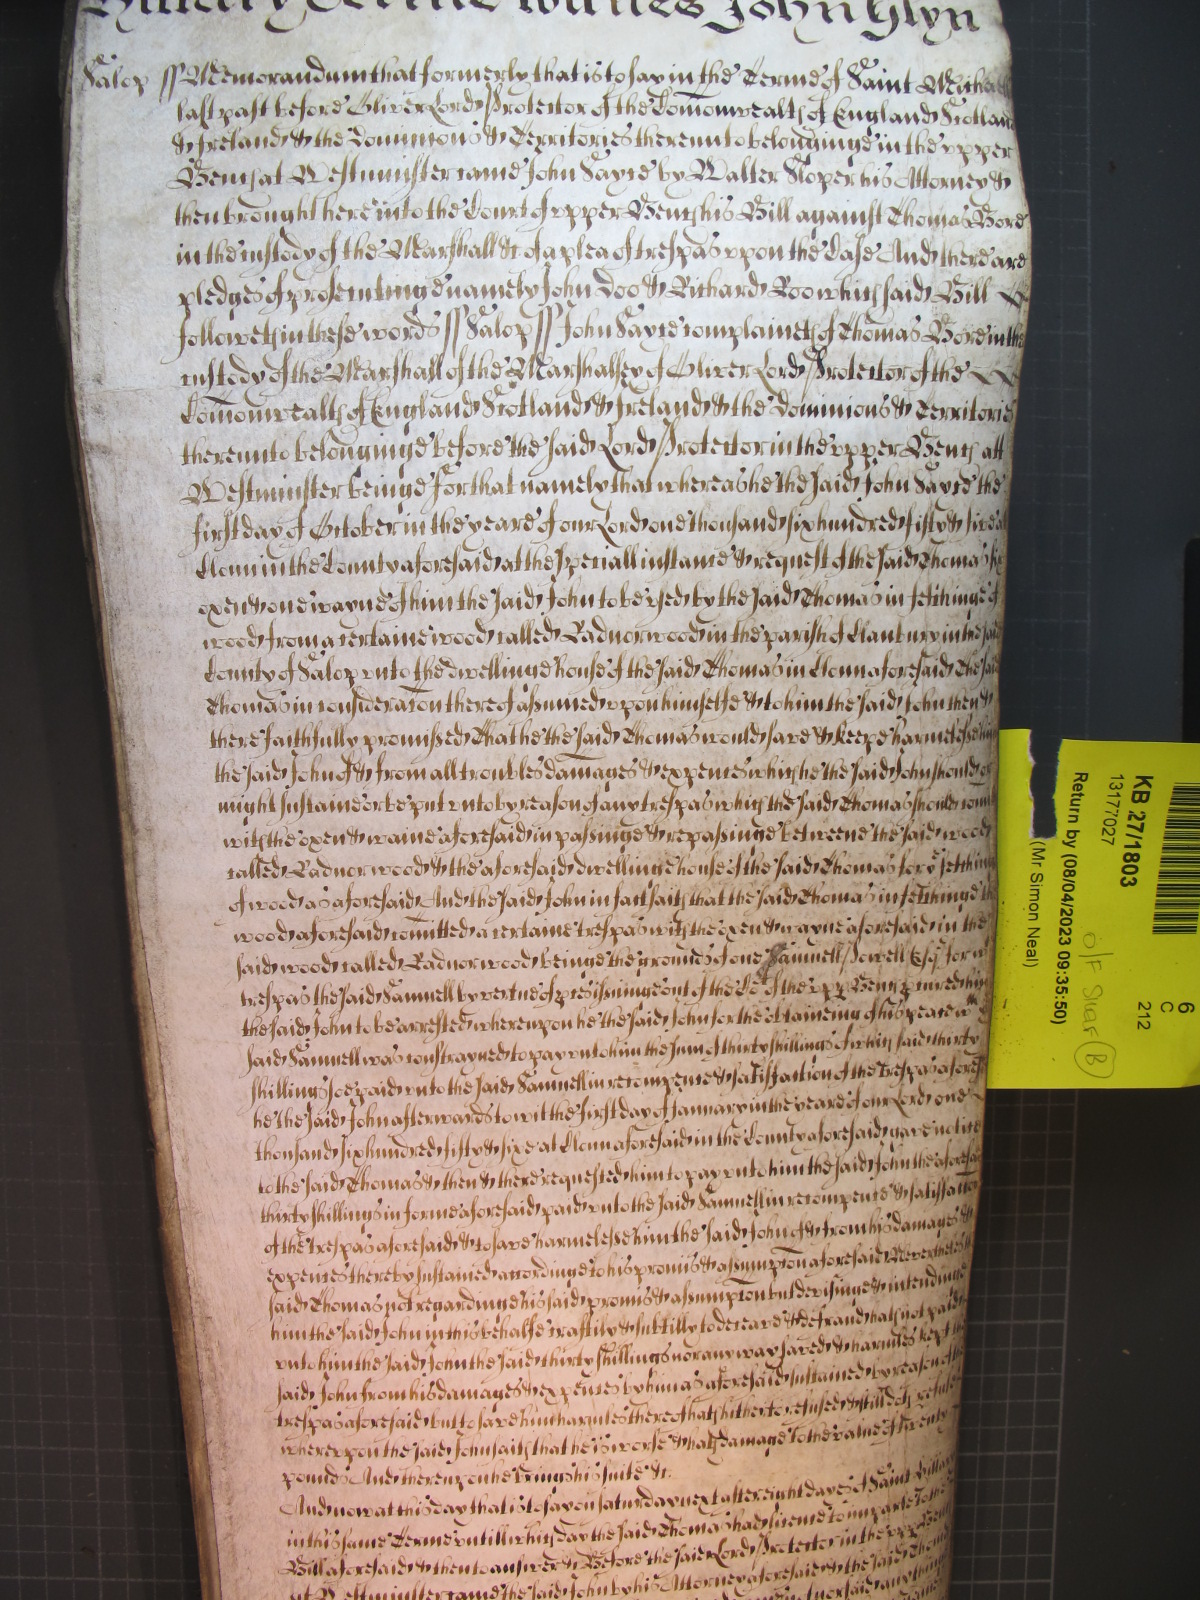 Hillary Terme witnes John Glyn
Salop ss Memorandum that formerly that is to say in the Terme of Saint Michaell
last past before Oliver Lord Protector of the Comonwealth of England Scotland
& Ireland & the Dominions & Territories thereunto belonginge in the upper
Bench at Westminster came John Sayce by Walter Sloper his Attorney &
then brought here into the Court of upper Bench his Bill against Thomas Gore
in the custody of the Marshall &c of a plea of trespas uppon the Case And there are
pledges of prosecutinge namely John Doo & Richard Roo which said Bill
followeth in these words ss Salop ss John Sayce complaineth of Thomas Gore in the
custody of the Marshall of the Marshalsey of Oliver Lord Protector of the
Comonwealth of England Scotland & Ireland & the Dominions & Territories
thereunto belonginge before the said Lord Protector in the upper Bench att
Westminster beinge For that namely that whereas he the said John Sayce the
first day of October in the yeare of our Lord one thousand six hundred fifty & five at
Clonn in the County aforesaid at the speciall instance & request of the said Thomas
oxen & one wayne of him the said John to be used by the said Thomas in fetchinge of
wood from a certaine wood called Radnor wood in the parish of Clanbury in the said
County of Salop unto the dwellinge house of the said Thomas in Clonn aforesaid The said
Thomas in consideracon thereof assumed uppon himselfe & to him the said John then &
there faithfully promissed That he the said Thomas would save & keepe harmelesse him
the said John of & from all troubles damages & expences which he the said John should or
might sustaine or be put unto by reason of any trespas which the said Thomas should comitt
with the oxen & waine aforesaid in passinge & repassinge betweene the said wood
called Radnor wood & the aforesaid dwellinge house of the said Thomas for fetchinge
of wood as aforesaid And the said John in fact saith that the said Thomas in fetchinge the
wood aforesaid comitted a certaine trespas with the oxen & wayne aforesaid in the
said wood called Radnor wood beinge the grounds of one Samuell Powell Esq for
trespas the said Samuell by vertue of proces issuinge out of the Co of the upp Bench procured him
the said John to be arrested whereupon he the said John for the obtaineing of his peace
said Samuell was constrayned to pay unto him the sum of thirty shillings which said thirty
shillings soe paid unto the said Samuell in recompence & satisfaction of the trespas aforesaid
he the said John afterwards to wit the first day of January in the yeare of our Lord one
thousand six hundred fifty & six at Clonn aforesaid in the County aforesaid gave notice
to the said Thomas & then & there requested him to pay unto him the said John the aforesaid
thirty shillings in forme aforesaid paid unto the said Samuell in recompence & satisfaction
of the trespas aforesaid & to save harmelesse him the said John of & from his damages &
expences thereby sustained accordinge to his promis & assumpcon aforesaid Neverthelesse
said Thomas not regardinge his said promis & assumpcon but devisinge & intendinge
him the said John in this behalfe craftily & subtilly to deceave & defraud hath not paid
unto him the said John the said thirty shillings nor any way saved & harmles kept the
said John from his damages & expences by him as aforesaid sustained by reason of the
trespas aforesaid but to save him harmles thereof hath hitherto refused & still doth refuse
whereuppon the said John saith that he is worse & hath damage to the value of twenty
pounds And thereupon he brings his suite &c
And now at this day that is to say on Saturday next after eight dayes of Saint Hillary
in this same Terme untill which day the said Thomas had licence to imparle to the
Bill aforesaid & then to answer &c Before the said Lord Protector in the upper Bench
at Westminster came the said John by his Attorney aforesaid & the said Thomas
KB 27/1803
13177027
Return by (08/04/2023 09:35:50)
(Mr Simon Neal)
6
C
212
O/F Shelf B